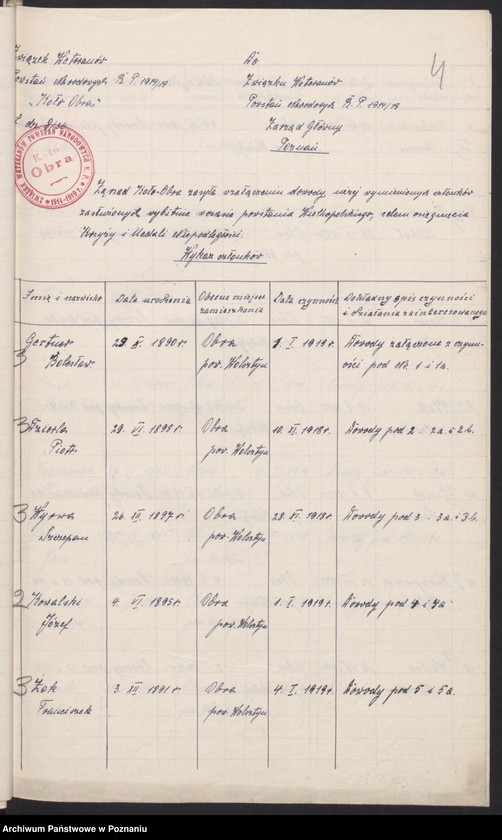 Związek Weteranów
Powstań Narodowych R.P. 1914/19
"Koło Obra"
L. dz.
Do
Związku Weteranów
Powstań Narodowych R.P. 1914/19
Zarząd Główny
Poznań
4
ZWIĄZEK WETERANÓW POWSTAŃ NARODOWYCH R.P. 1914-1919
Koło
Obra
Zarząd Koło-Obra zasyła w załączeniu dowody niżej wymienionych członków
zasłużonych wybitnie w czasie powstania Wielkopolskiego, celem osiągnięcia
Krzyży i Medali Niepodległości.
Wykaz członków
Imię i nazwisko | Data urodzenia | Obecne miejsce zamieszkania | Data czynności | Dokładny opis czynności i działania zainteresowanego
3 Gertner Bolesław | 29 X. 1890 r. | Obra pow. Wolsztyn | 1. I. 1919 r. | Dowody załączone z czynności pod Nr. 1 i 1a.
3 Piotr | 29. VI. 1898 r. | Obra pow. Wolsztyn | 10. XI. 1918 r. | Dowody pod 2 2a i 2b.
3 Wyrwa Szczepan | 26. XII. 1897 r. | Obra pow. Wolsztyn | 28. XI. 1918 r. | Dowody pod 3 i 3a i 3b.
2 Kowalski Józef | 4. VI. 1895 r. | Obra pow. Wolsztyn | 1. I. 1919 r. | Dowody pod 4 i 4a
3 Żok Franciszek | 3. XII. 1891 r. | Obra pow. Wolsztyn | 4. I. 1919 r. | Dowody pod 5 i 5a.
Archiwum Państwowe w Poznaniu